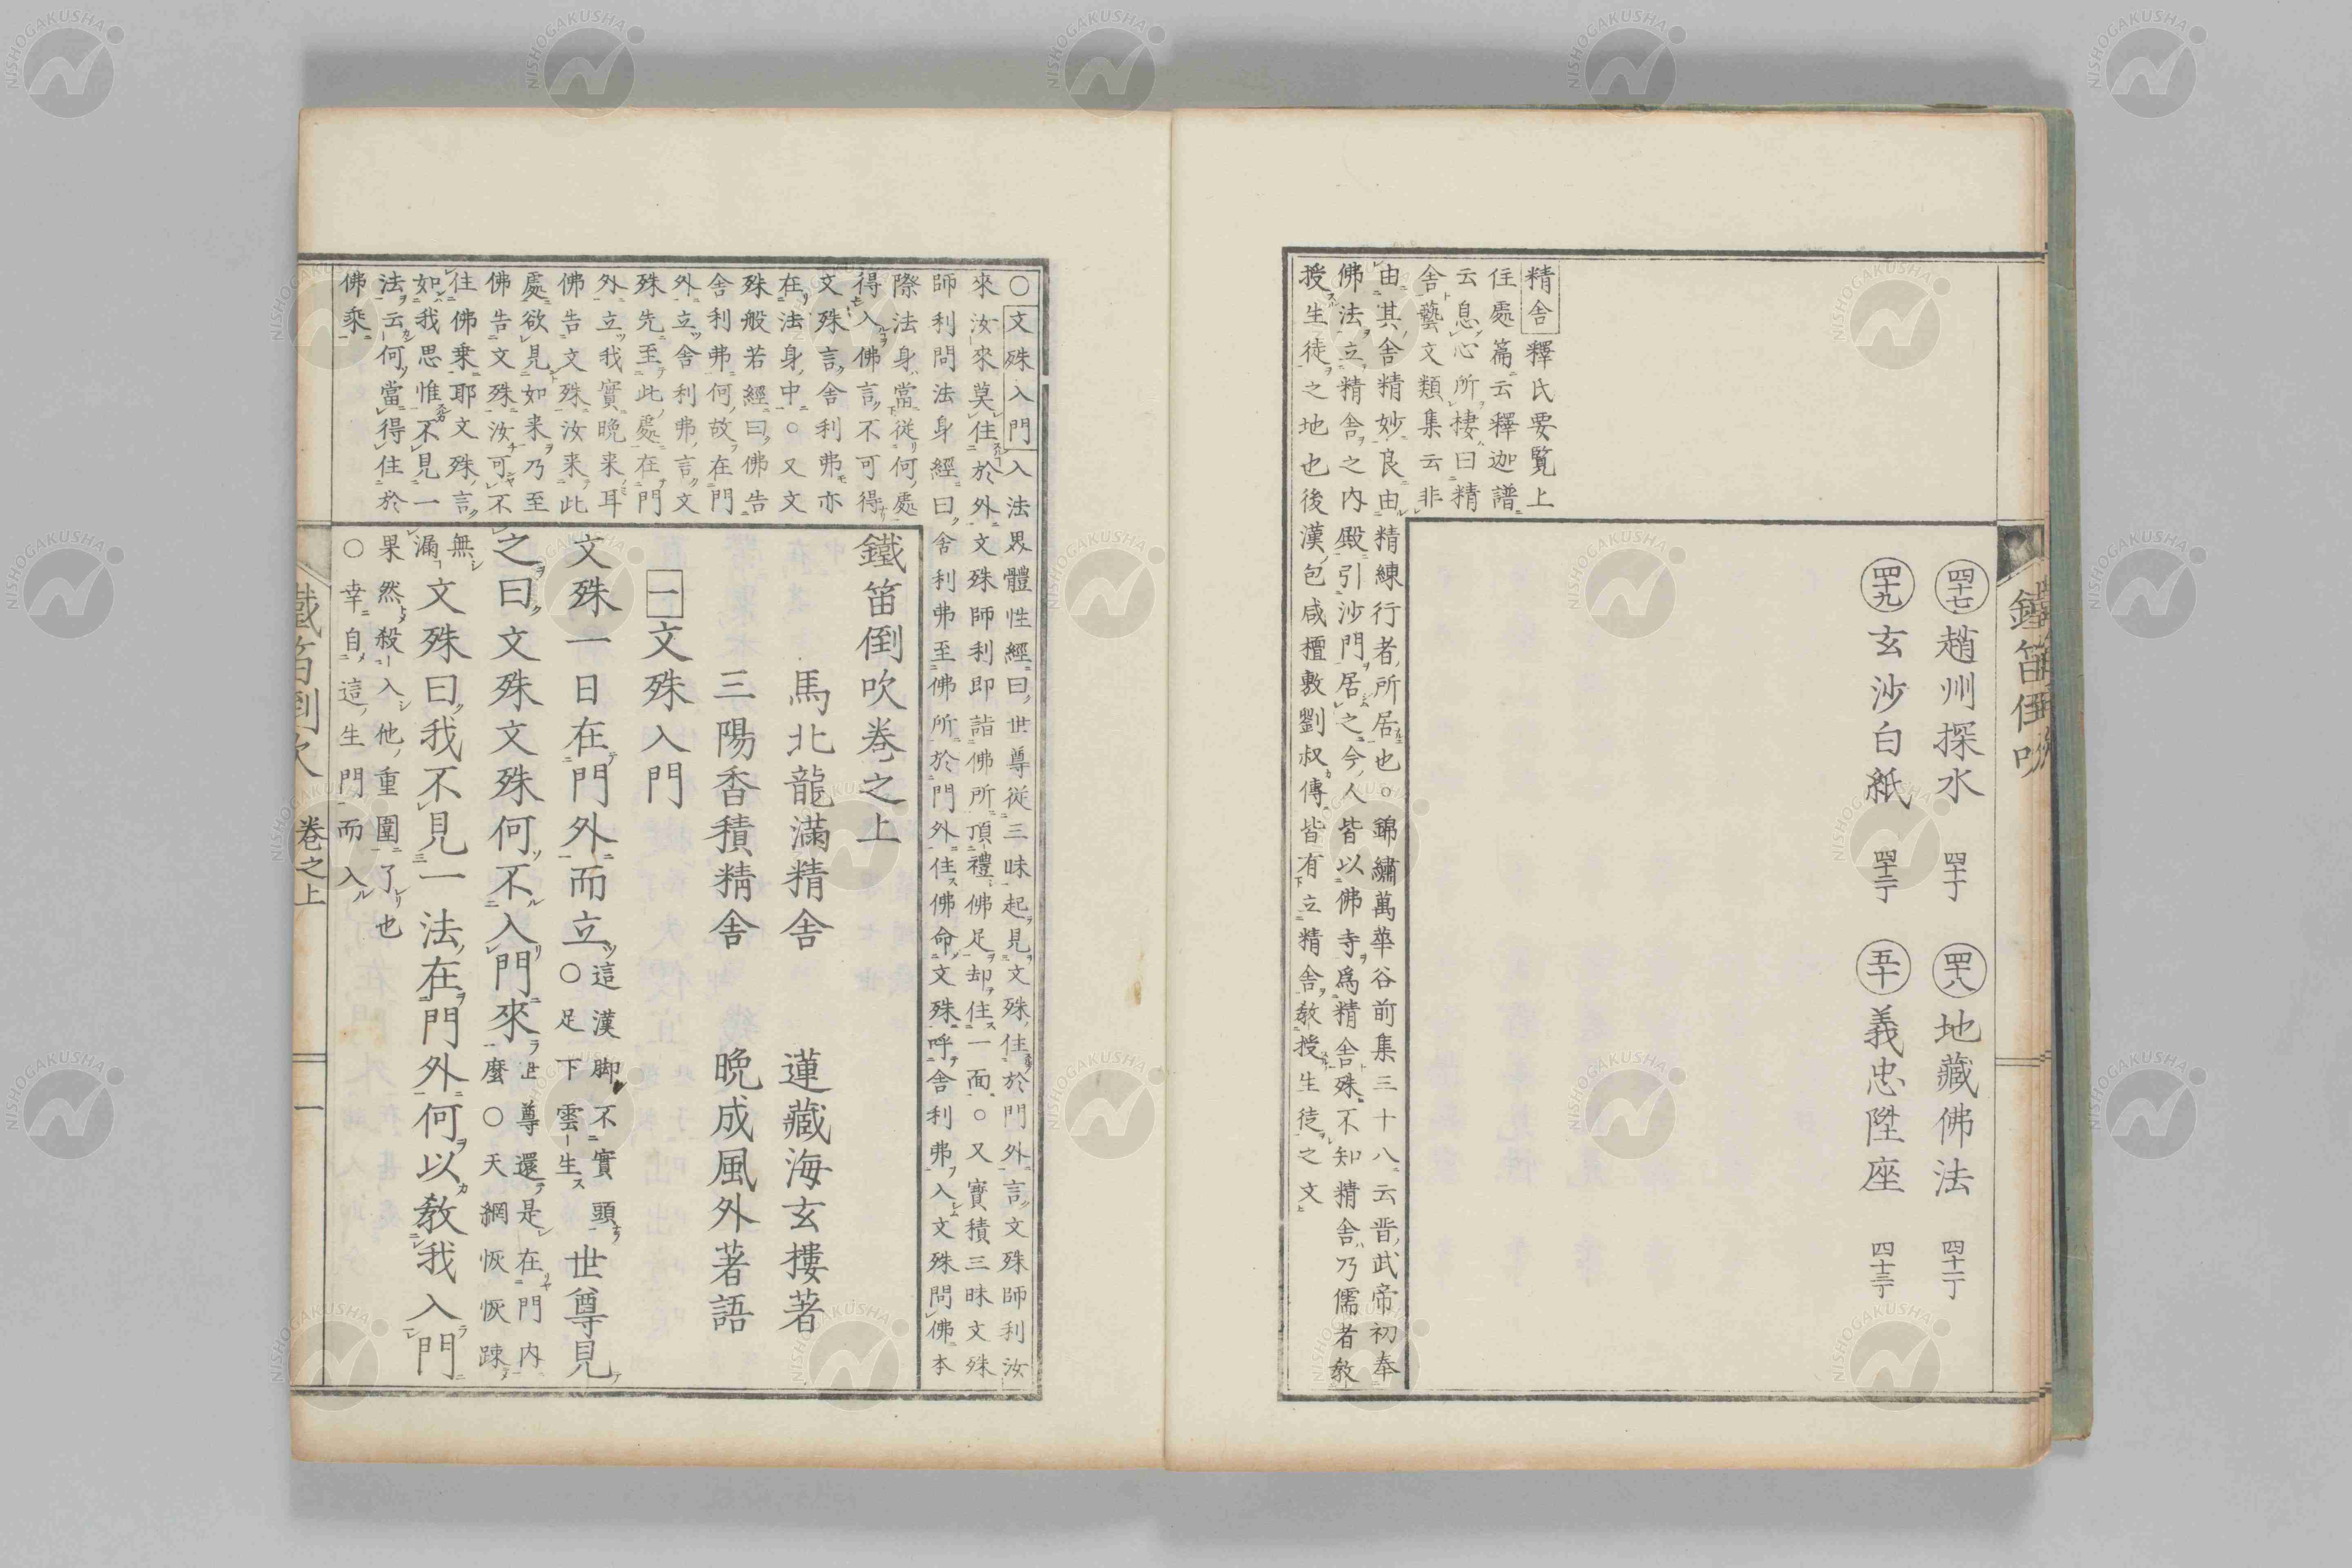 鐵笛倒吹
㊼趙州探水 四十丁 ㊽地藏佛法 四十一丁
㊾玄沙白紙 四十二丁 ㊿義忠陞座 四十三丁
精舍釋氏要覧上
住處篇云釋迦譜
云息心所棲曰精
舍藝文類集云非
由其舍精妙良由精練行者所居也○錦繡萬華谷前集三十八云晋武帝初奉
佛法立精舍之内殿引沙門居之今人皆以佛寺爲精舍殊不知精舍乃儒者教
授生徒之地也後漢包咸檀敷劉叔傳皆有立精舍教授生徒之文
○文殊入門入法界體性經曰世尊從三昧起見文殊住於門外言文殊師利汝
來汝來莫住於外文殊師利即詣佛所頂禮佛足却住一面○又寶積三昧文殊
師利問法身經曰舍利弗至佛所於門外住佛命文殊呼舍利弗入文殊問佛本
際法身當從何處
得入佛言不可得
文殊言舍利弗亦
在法身中○又文
殊般若經曰佛告
舍利弗何故在門
外立舍利弗言文
殊先至此處在門
外立我實晩来耳
佛告文殊汝来此
處欲見如来乃至
佛告文殊汝可不
住佛乗耶文殊言
如我思惟不見一
法云何當得住於
佛乘
鐵笛倒吹卷之上
馬北龍滿精舍 蓮藏海玄摟著
三陽香積精舍 晩成風外著語
一文殊入門
文殊一日在門外而立這漢脚不實頭○足下雲生世尊見
之曰文殊文殊何不入門來世尊還是在門内麼○天網恢恢踈
無漏文殊曰我不見一法在門外何以教我入門
果然殺入他重圍了也
○幸自這生門而入
鐵笛倒吹 卷之上 一